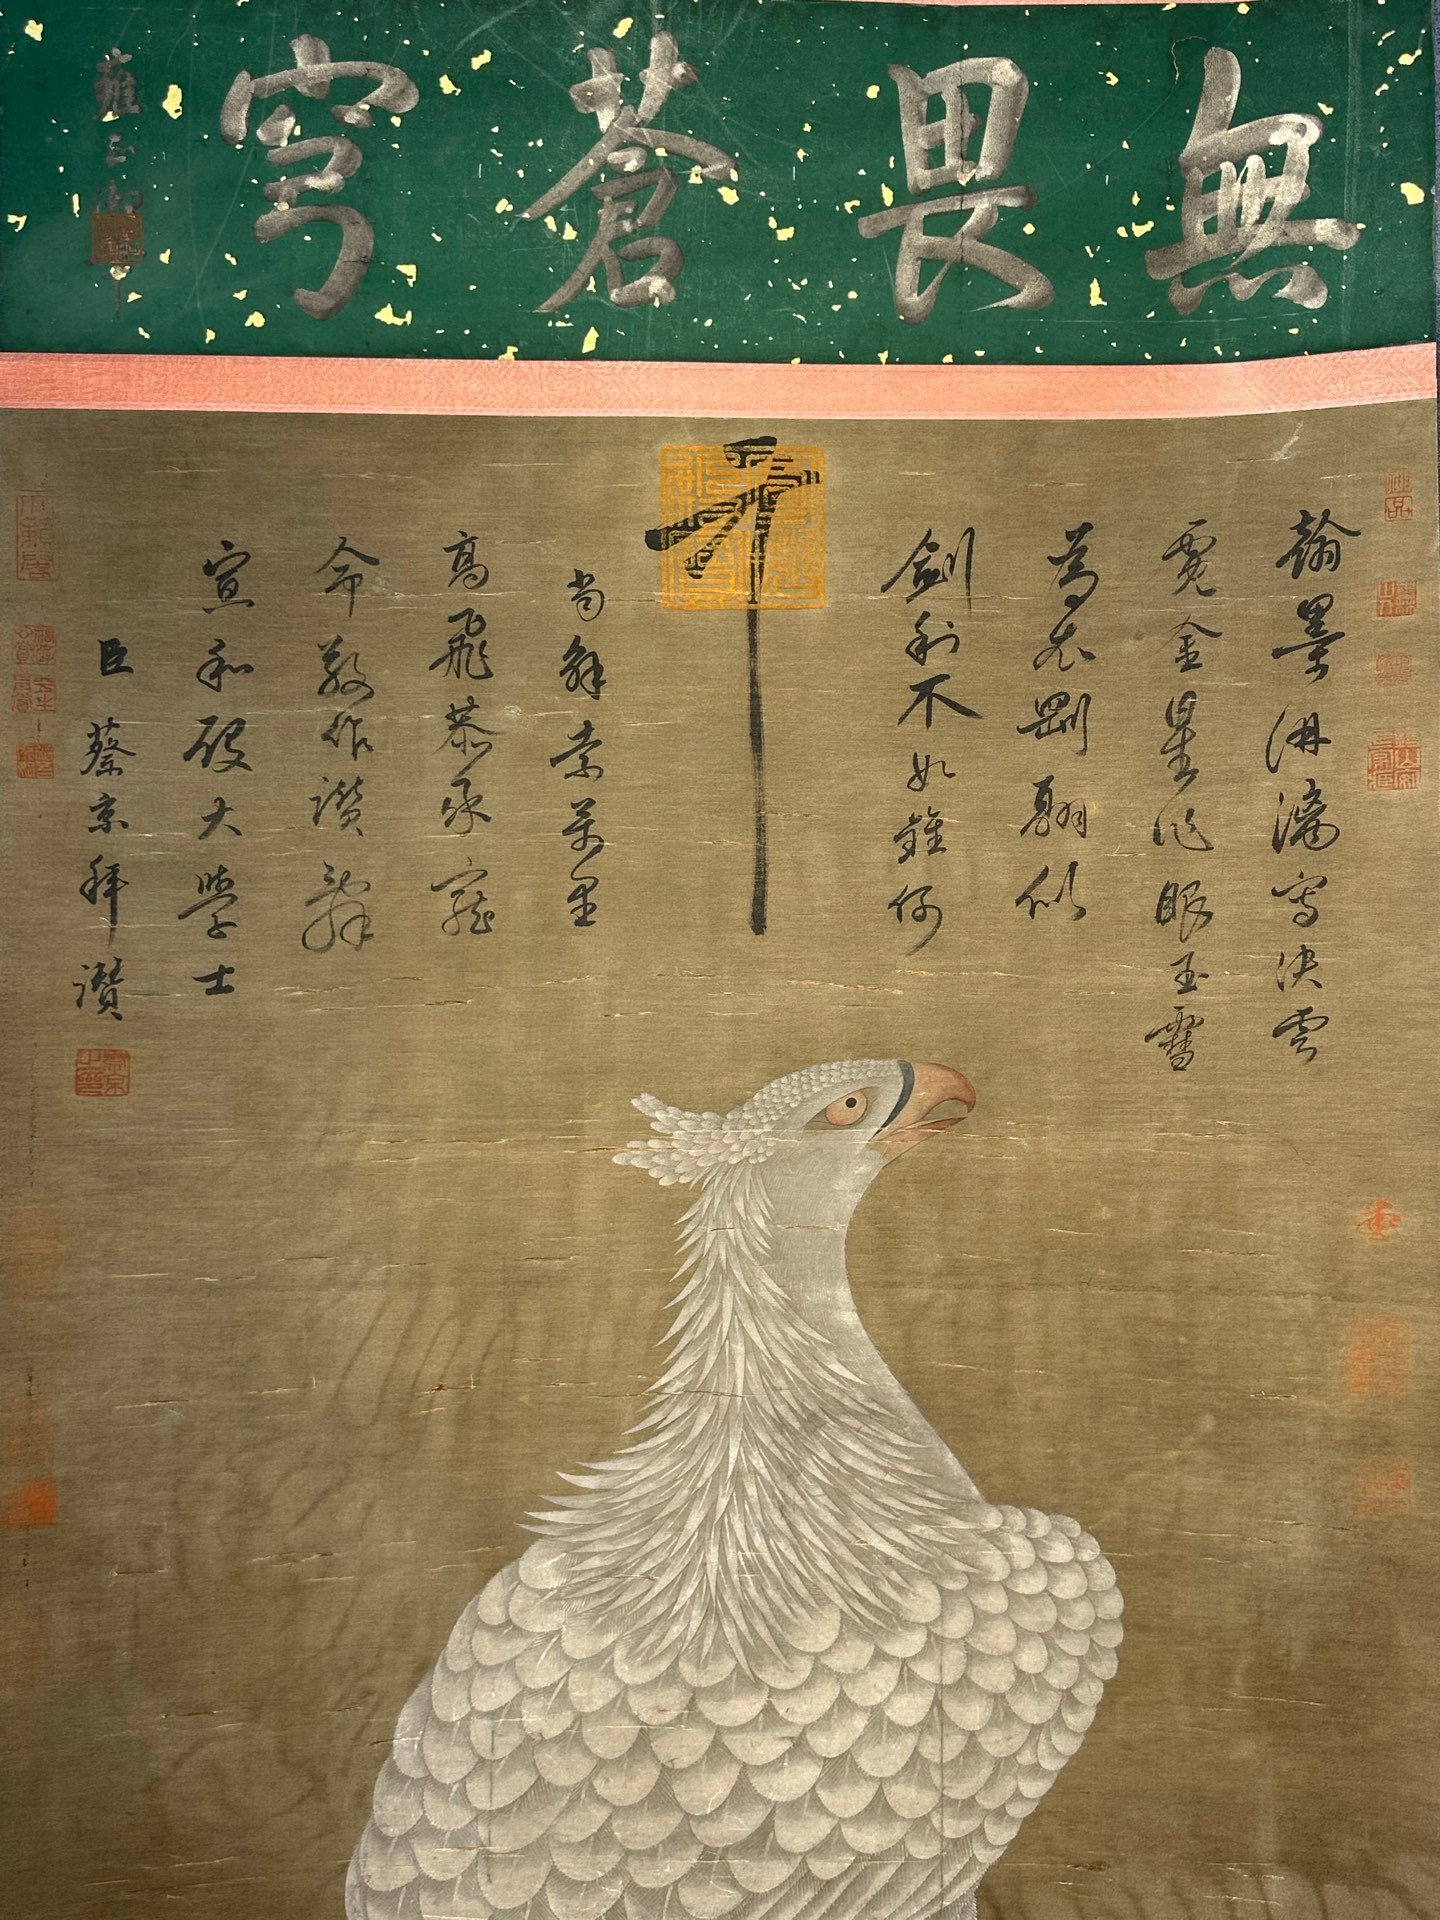 無畏蒼穹
雍正御
翰墨淋漓寫決雲
霓金星作眼玉雪
為衣剛翮似
劍利不如雖何
尚解索萬里
高飛恭承寵
命敬作讚辭
宣和殿大學士
臣蔡京拜讚